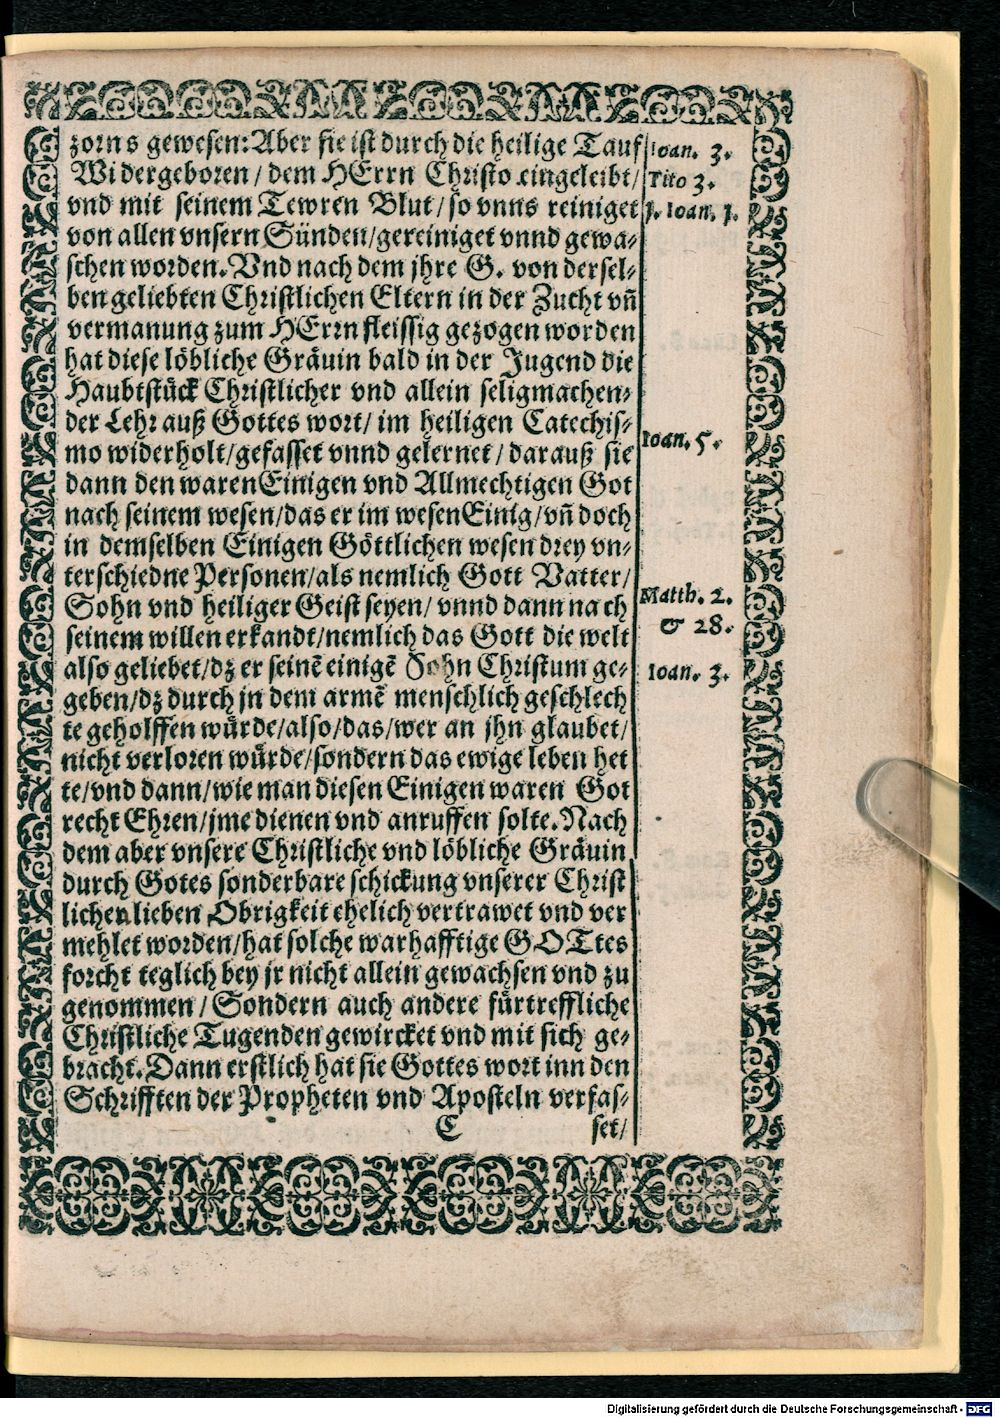 zorns gewesen: Aber sie ist durch die heilige Tauf
Ioan. 3.
Widergeboren / dem HErrn Christo eingeleibt /
Tito 3.
vnd mit seinem Tewren Blut / so vnns reiniget
1. Ioan. 1.
von allen vnsern Sünden / gereiniget vnnd gewa-
schen worden. Vnd nach dem jhre G. von dersel-
ben geliebten Christlichen Eltern in der Zucht vñ
vermanung zum HErrn fleissig gezogen worden
hat diese löbliche Gräuin bald in der Jugend die
Haubtstück Christlicher vnd allein seligmachen-
der Lehr auß Gottes wort / im heiligen Catechis-
mo widerholt / gefasset vnnd gelernet / darauß sie
Ioan. 5.
dann den waren Einigen vnd Allmechtigen Got
nach seinem wesen / das er im wesen Einig / vñ doch
in demselben Einigen Göttlichen wesen drey vn-
terschiedne Personen / als nemlich Gott Vatter /
Sohn vnd heiliger Geist seyen / vnnd dann nach
Matth. 2.
seinem willen erkandt / nemlich das Gott die welt
& 28.
also geliebet / dz er seinē einigē Sohn Christum ge-
Ioan. 3.
geben / dz durch jn dem armē menschlich geschlech
te geholffen würde / also / das / wer an jhn glaubet /
nicht verloren würde / sondern das ewige leben het
te / vnd dann / wie man diesen Einigen waren Got
recht Ehren / jme dienen vnd anruffen solte. Nach
dem aber vnsere Christliche vnd löbliche Gräuin
durch Gotes sonderbare schickung vnserer Christ
lichen lieben Obrigkeit ehelich vertrawet vnd ver
mehlet worden / hat solche warhafftige GOTtes
forcht teglich bey jr nicht allein gewachsen vnd zu
genommen / Sondern auch andere fürtreffliche
Christliche Tugenden gewircket vnd mit sich ge-
bracht. Dann erstlich hat sie Gottes wort inn den
Schrifften der Propheten vnd Aposteln verfas-
C
set /
Digitalisierung gefördert durch die Deutsche Forschungsgemeinschaft - DFG